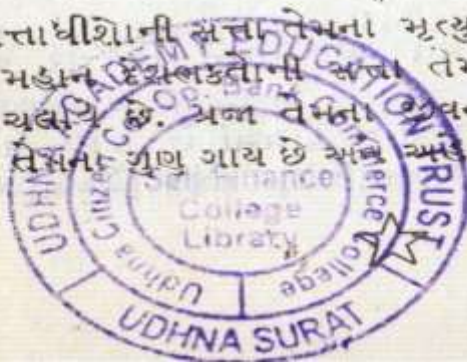 ત્તાધીશોની સત્તા તેમના મૃત્યુ
મહાન દેશભક્તોની સત્તા તેમ
ચલાવે છે. પ્રજા તેમના જીવન
તેમના ગુણ ગાય છે અને
UDHNA ACADEMY EDUCATION TRUST
Udhna Citizen Co. Op. Bank Commerce College
Self Finance
College
Library
UDHNA SURAT